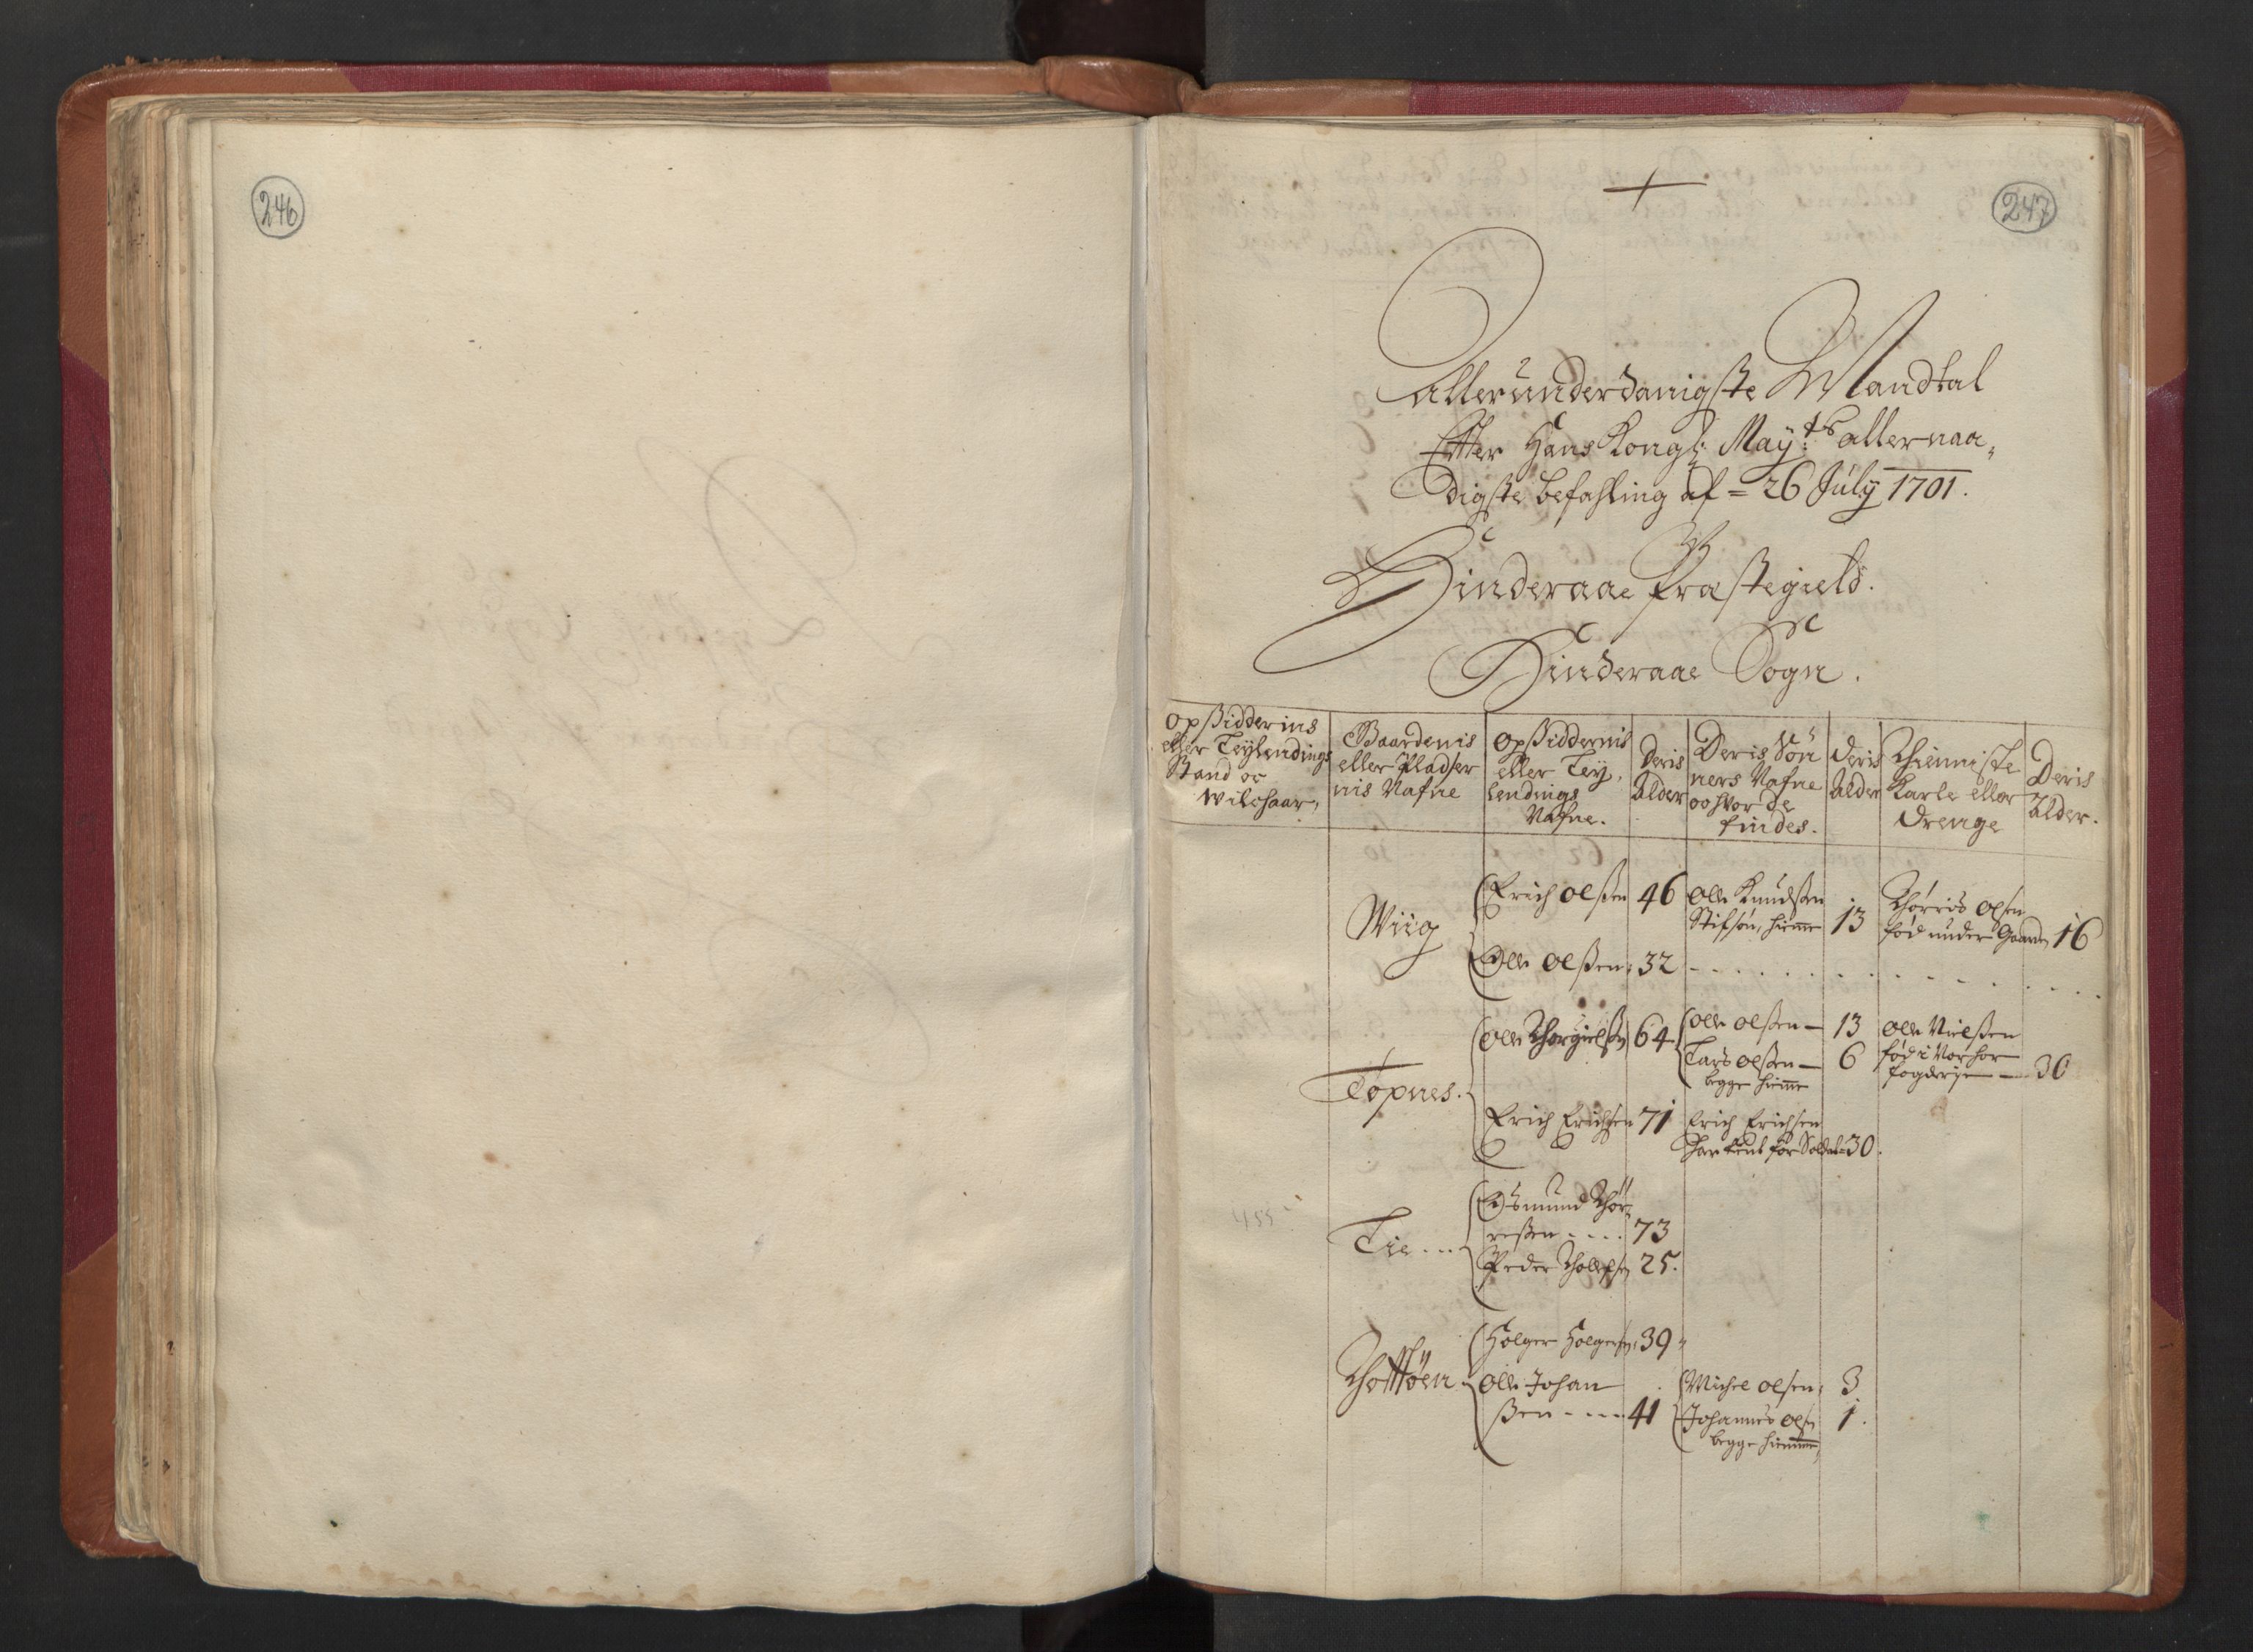 246
247
Allerunderdanigste Mandtal
Efter Hans Kongl: Mayts allernaa„
digste befahling af = 26 July 1701.
Hinderaae Præstegield.
Hinderaae Sogn.
Opsidderins eller Leylendings Stand oc Wilchaar,
Gaardenis eller Pladsernis Nafne
Opsiddernis eller Ley, lendings Nafne.
Deris Alder
Deris Sönners Nafne oc hvor de findes.
Deris Alder
Thienniste Karle eller Drenge
Deris Alder.
Wiig
Erich Olßen 46 Olle Knudßen
Stifsøn, hiemme 13 Thörris Olsen
fød under Gaarden 16
Olle Olßen: 32
Tøpnes.
Olle Thorgielßen 64 Olle Olßen — 13 Olle Nielßen
Lars Olßen — 6 fød i Nor hor
begge hiemme fogderje — 30
Erich Erichsen 71 Erich Erichsen
har tient for Soldat 30.
455
Lie ...
Osmund Thör„
resßen .... 73
Peder Thollefsen 25.
Thottøen
Holger Holgersen: 39
Olle Johan
ßen - - - 41
Michel Olsen: 3
Johannes Olsen 1.
begge hiemme,